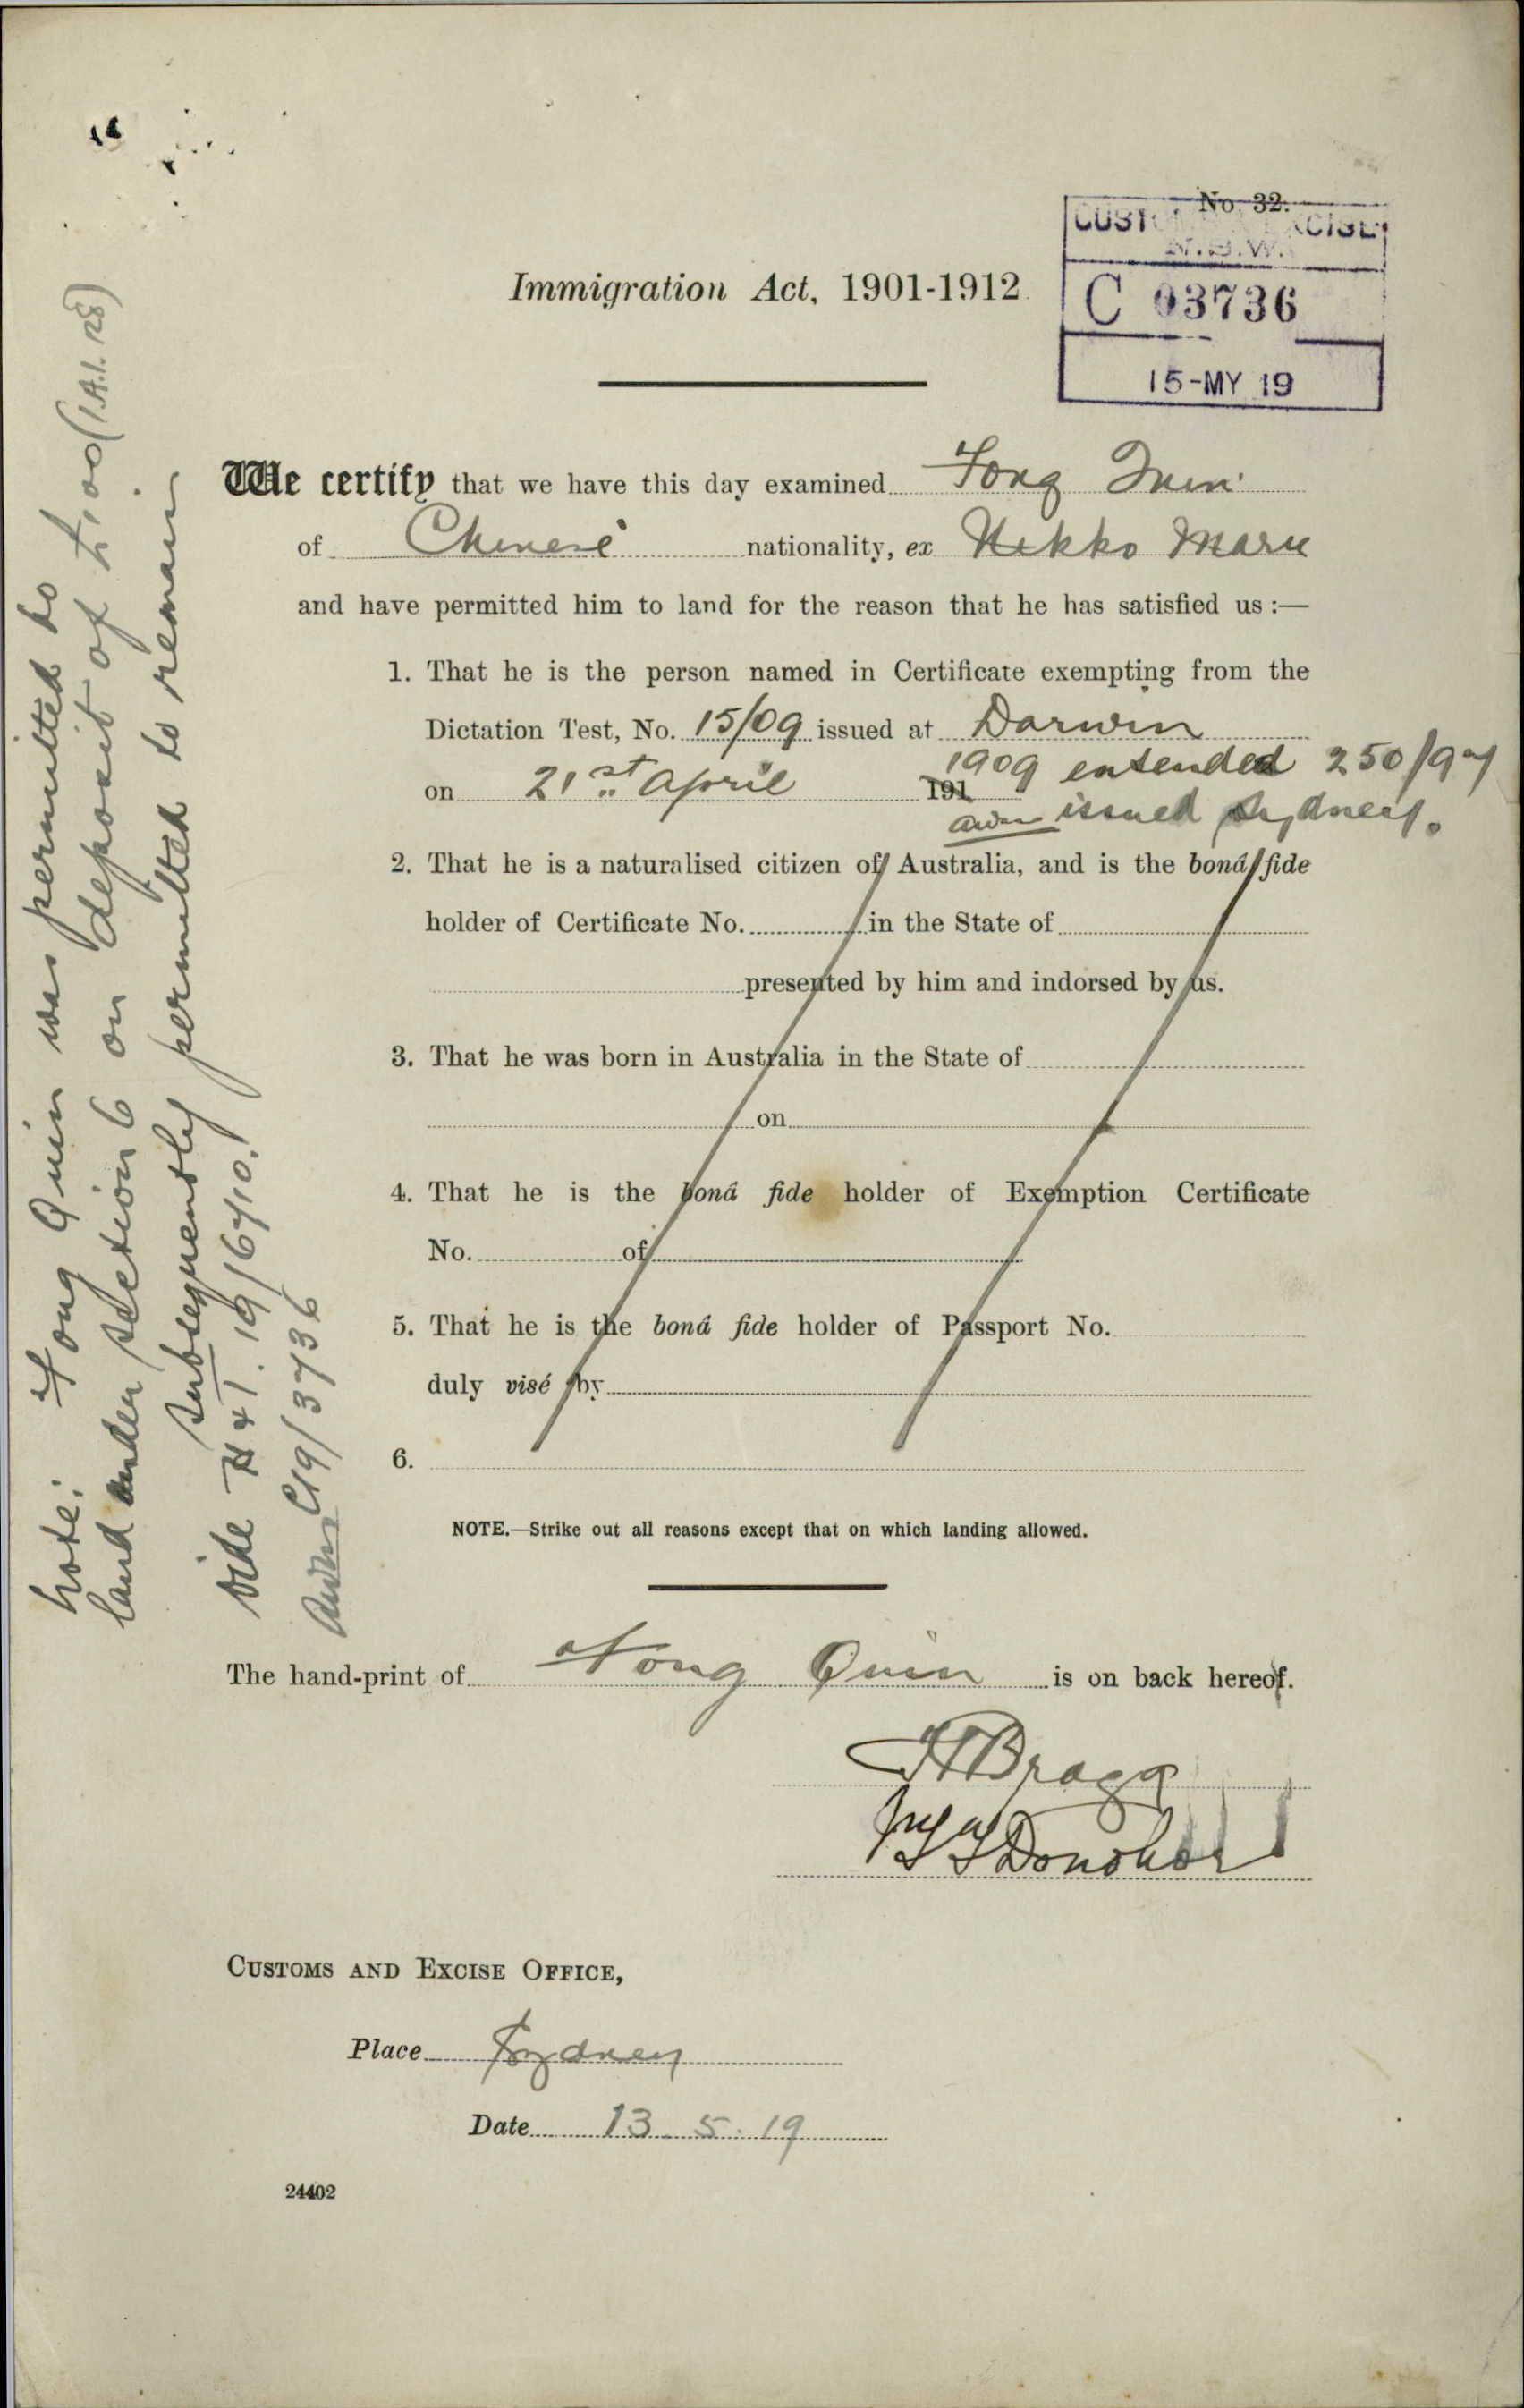 No. 32.
CUSTOMS EXCISE
N.S.W.
C 03736
15-MY 19
Immigration Act, 1901-1912
We certify that we have this day examined Fong Quin
of Chinese nationality, ex Nikko Maru
and have permitted him to land for the reason that he has satisfied us :—
1. That he is the person named in Certificate exempting from the
Dictation Test, No. 15/09 issued at Darwin
on 21st April 191 1909 extended 250/97
issued Sydney.
2. That he is a naturalised citizen of Australia, and is the bonâ fide
holder of Certificate No. in the State of
presented by him and indorsed by us.
3. That he was born in Australia in the State of
on
4. That he is the bonâ fide holder of Exemption Certificate
No. of
5. That he is the bonâ fide holder of Passport No.
duly visé by
6.
NOTE.—Strike out all reasons except that on which landing allowed.
The hand-print of Fong Quin is on back hereof.
Bragg
Donohoe
CUSTOMS AND EXCISE OFFICE,
Place Sydney
Date 13.5.19
24402
Note: Fong Quin was permitted to
land under section 6 on deposit of £100
subsequently permitted to remain
vide H & T. 19/6710.
C19/3736